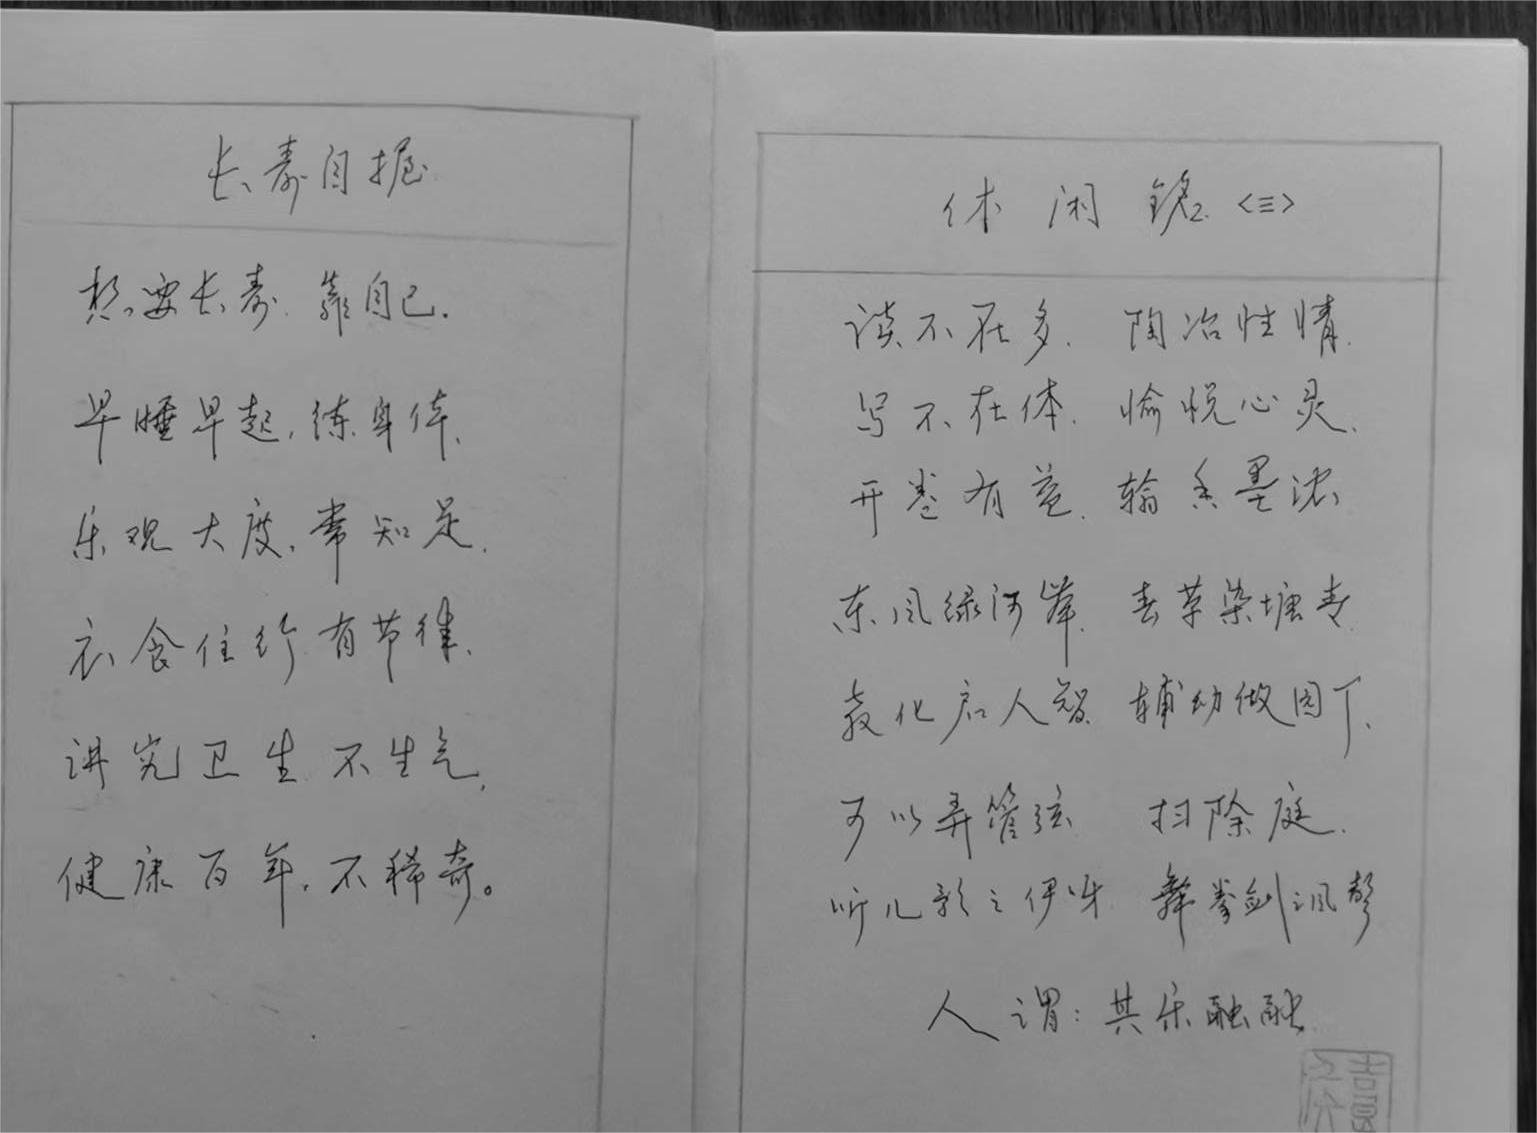 长寿自握
想要长寿.靠自己.
早睡早起,练身体、
乐观大度,常知足.
衣食住行有节律.
讲究卫生.不生气,
健康百年,不稀奇。
休闲铭<三>
读不在多. 陶冶性情.
写不在体. 愉悦心灵.
开卷有益. 翰香墨浓
东风绿河岸. 春草染塘青.
教化启人智. 辅幼做园丁.
可以弄管弦 扫除庭.
听儿歌之伊呀 舞拳剑之风声
人谓:其乐融融.